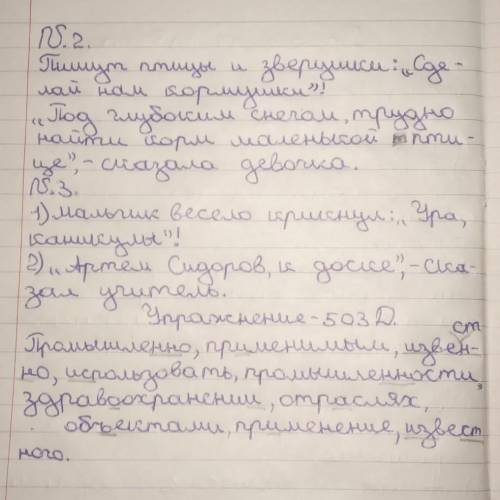 №2.
Пишут птицы и зверушки: „Сде-
лай нам кормушки”!
„Под глубоким снегом, трудно
найти корм маленькой пти-
це”, - сказала девочка.
№3.
1) Мальчик весело крикнул: „Ура,
каникулы”!
2) „Артём Сидоров, к доске”, - ска-
зал учитель.
Упражнение - 503 Д.
ст
Промышленно, применимым, извен-
но, использовать, промышленности,
здравоохранении, отраслях,
объектами, применение, извест
ного.